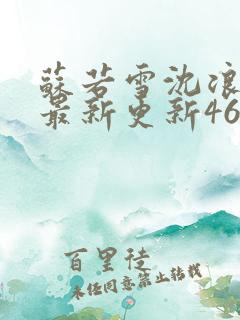 蘇若雪沈浪
最新更新46
百里徒
未经同意禁止转载